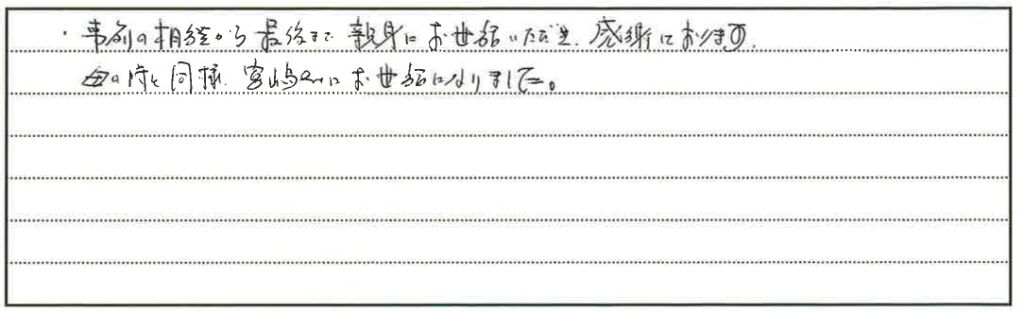 ・事前の相談から最後まで親身にお世話いただき、感謝しております。
母の時と同様、宮嶋さんにお世話になりました。